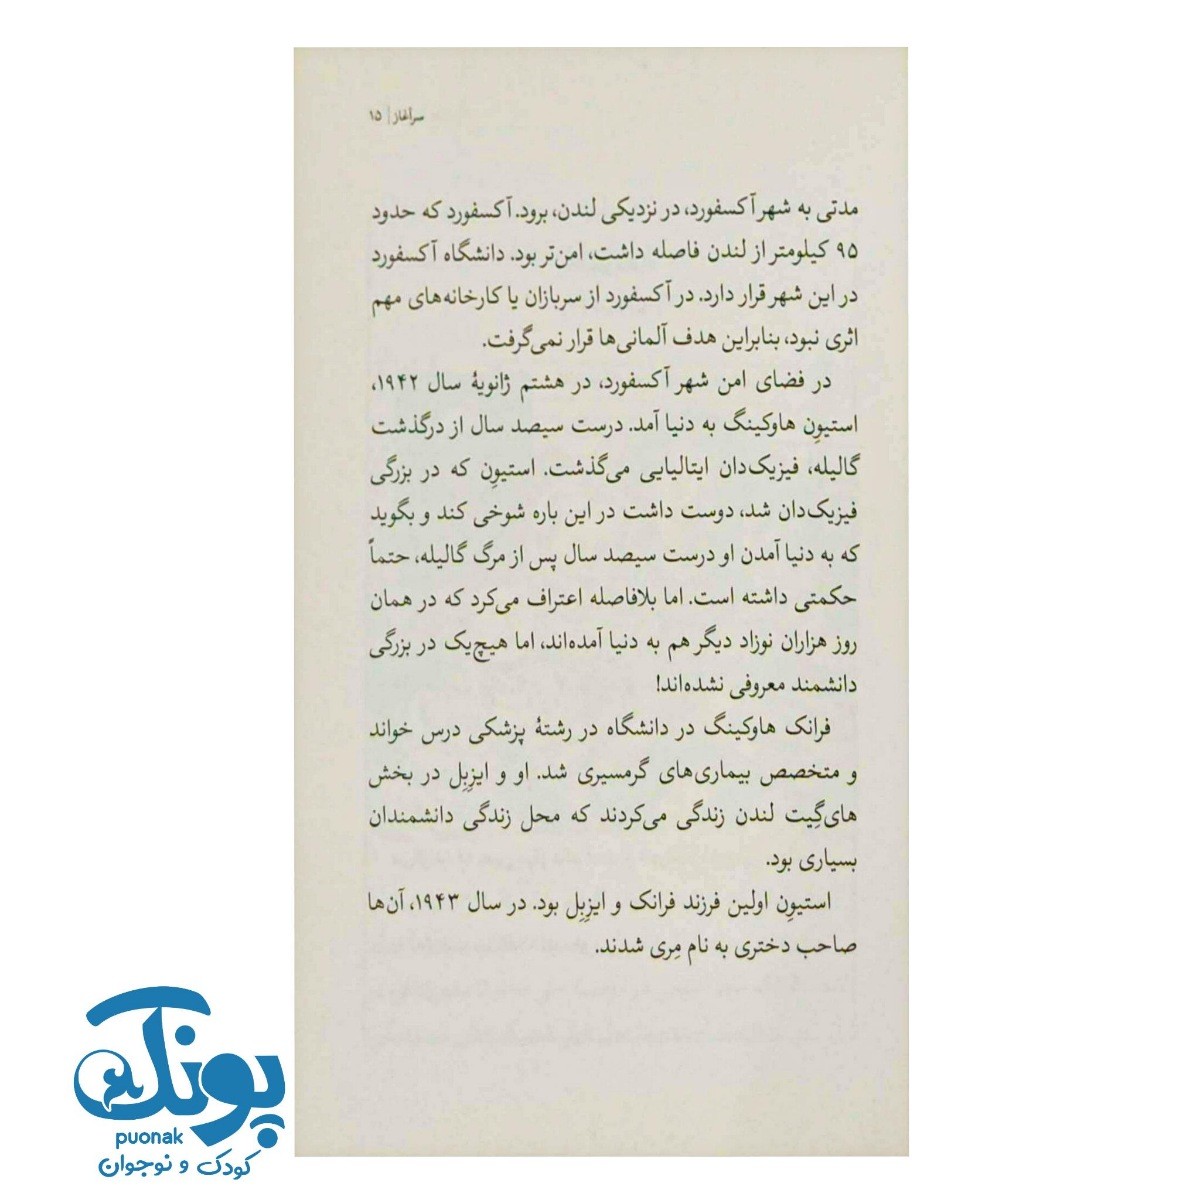 سرآغاز | ۱۵
مدتی به شهر آکسفورد، در نزدیکی لندن، برود. آکسفورد که حدود
۹۵ کیلومتر از لندن فاصله داشت، امن‌تر بود. دانشگاه آکسفورد
در این شهر قرار دارد. در آکسفورد از سربازان یا کارخانه‌های مهم
اثری نبود، بنابراین هدف آلمانی‌ها قرار نمی‌گرفت.
در فضای امن شهر آکسفورد، در هشتم ژانویهٔ سال ۱۹۴۲،
استیوِن هاوکینگ به دنیا آمد. درست سیصد سال از درگذشت
گالیله، فیزیک‌دان ایتالیایی می‌گذشت. استیوِن که در بزرگی
فیزیک‌دان شد، دوست داشت در این باره شوخی کند و بگوید
که به دنیا آمدن او درست سیصد سال پس از مرگ گالیله، حتماً
حکمتی داشته است. اما بلافاصله اعتراف می‌کرد که در همان
روز هزاران نوزاد دیگر هم به دنیا آمده‌اند، اما هیچ‌یک در بزرگی
دانشمند معروفی نشده‌اند!
فرانک هاوکینگ در دانشگاه در رشتهٔ پزشکی درس خواند
و متخصص بیماری‌های گرمسیری شد. او و ایزِبِل در بخش
های‌گِیت لندن زندگی می‌کردند که محل زندگی دانشمندان
بسیاری بود.
استیوِن اولین فرزند فرانک و ایزِبِل بود. در سال ۱۹۴۳، آن‌ها
صاحب دختری به نام مِری شدند.
پونک
puonak
کودک و نوجوان